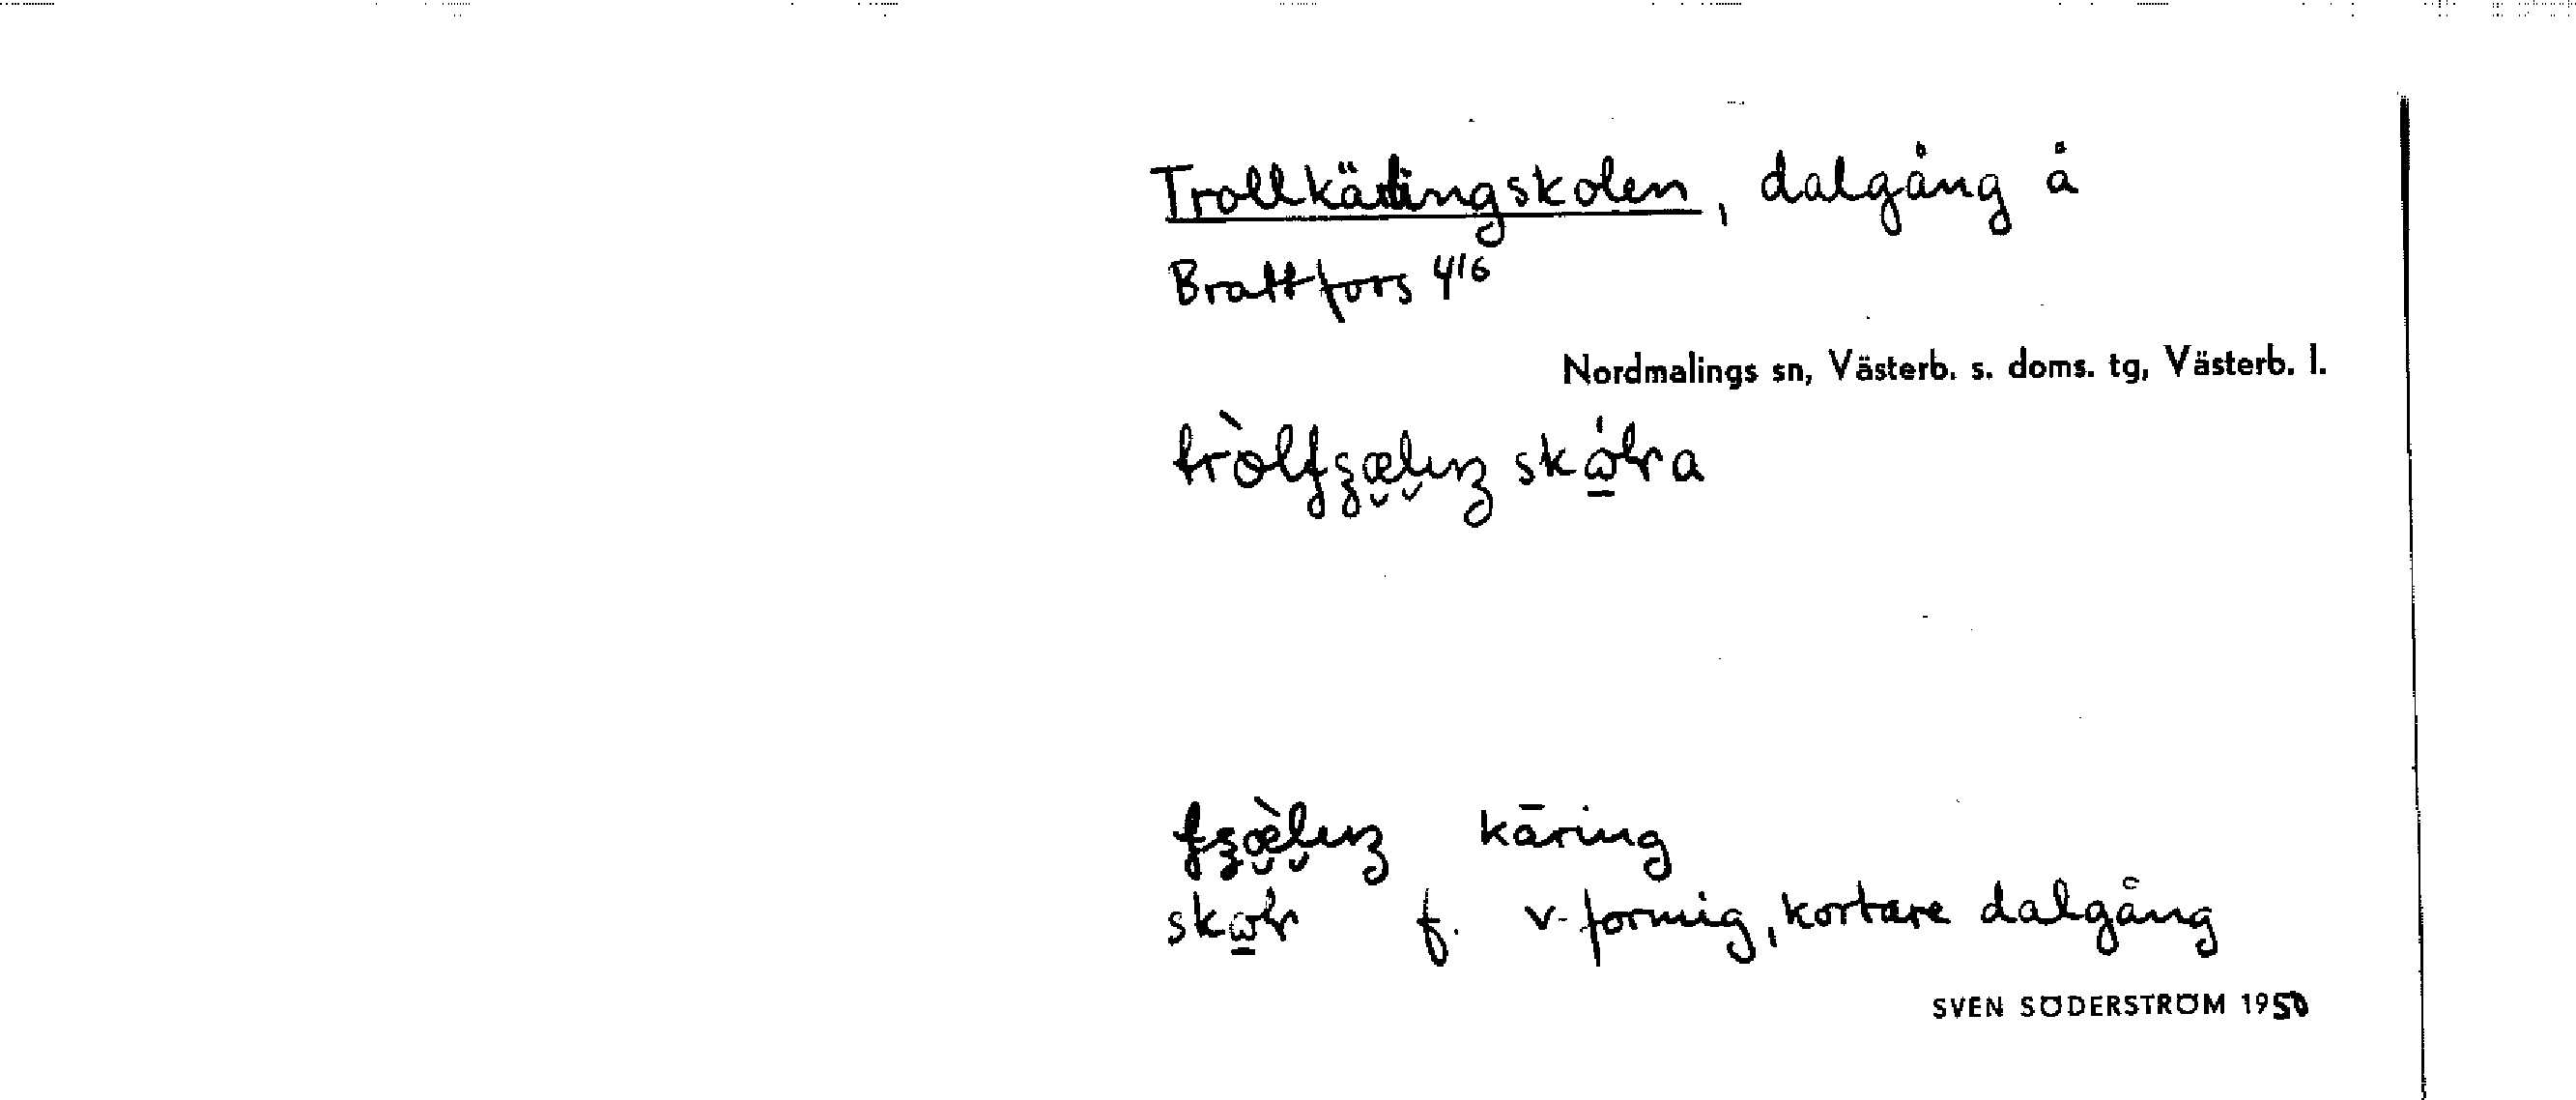 Trollkärlingskolen, dalgång å
Brattfors 4¹⁶
Nordmalings sn, Västerb. s. doms. tg, Västerb. l.
käring
f. v-formig, kortare dalgång
SVEN SÖDERSTRÖM 1950